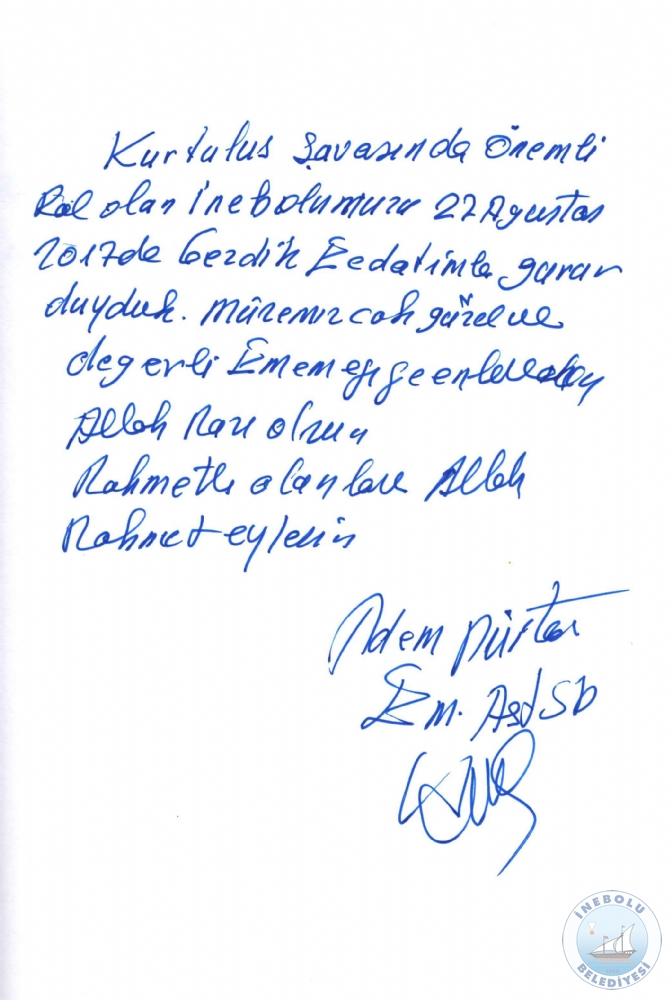 Kurtulus Savasında önemli
Rol olan İnebolumuzu 27 Agustos
2017de Gezdik Ecdatımla gurur
duyduk. Müzemiz cok güzel ve
degerli Ememe gecenlerden
Allah Razı olsun
Rahmetli olanlara Allah
Rahmet eylesin
Adem
Em. Astsb
İNEBOLU
BELEDİYESİ